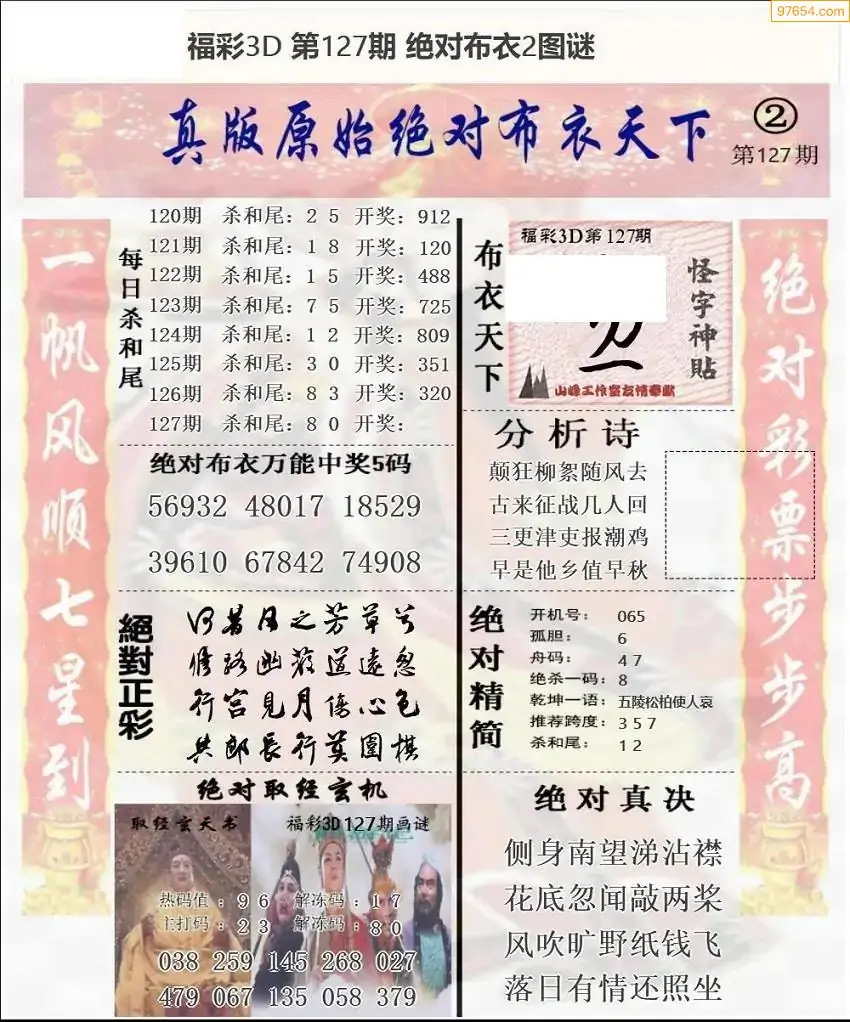 97654.com
福彩3D 第127期 绝对布衣2图谜
真版原始绝对布衣天下
②
第127期
一帆风顺七星到
每日杀和尾
120期 杀和尾：2 5 开奖：912
121期 杀和尾：1 8 开奖：120
122期 杀和尾：1 5 开奖：488
123期 杀和尾：7 5 开奖：725
124期 杀和尾：1 2 开奖：809
125期 杀和尾：3 0 开奖：351
126期 杀和尾：8 3 开奖：320
127期 杀和尾：8 0 开奖：
绝对布衣万能中奖5码
56932 48017 18529
39610 67842 74908
絕對正彩
何昔日之芳草兮
修路幽蔽道远忽
行宫見月傷心色
共郎長行莫圍棋
绝对取经玄机
取经玄天书
福彩3D127期画谜
热码值：9 6 解冻码：1 7
主打码：2 3 解冻码：8 0
038 259 145 268 027
479 067 135 058 379
布衣天下
福彩3D第127期
怪字神貼
山峰工作室友情奉献
分析诗
颠狂柳絮随风去
古来征战几人回
三更津吏报潮鸡
早是他乡值早秋
绝对精简
开机号： 065
孤胆： 6
舟码： 4 7
绝杀一码：8
乾坤一语：五陵松柏使人哀
推荐跨度：3 5 7
杀和尾： 1 2
绝对真决
侧身南望涕沾襟
花底忽闻敲两桨
风吹旷野纸钱飞
落日有情还照坐
绝对彩票步步高